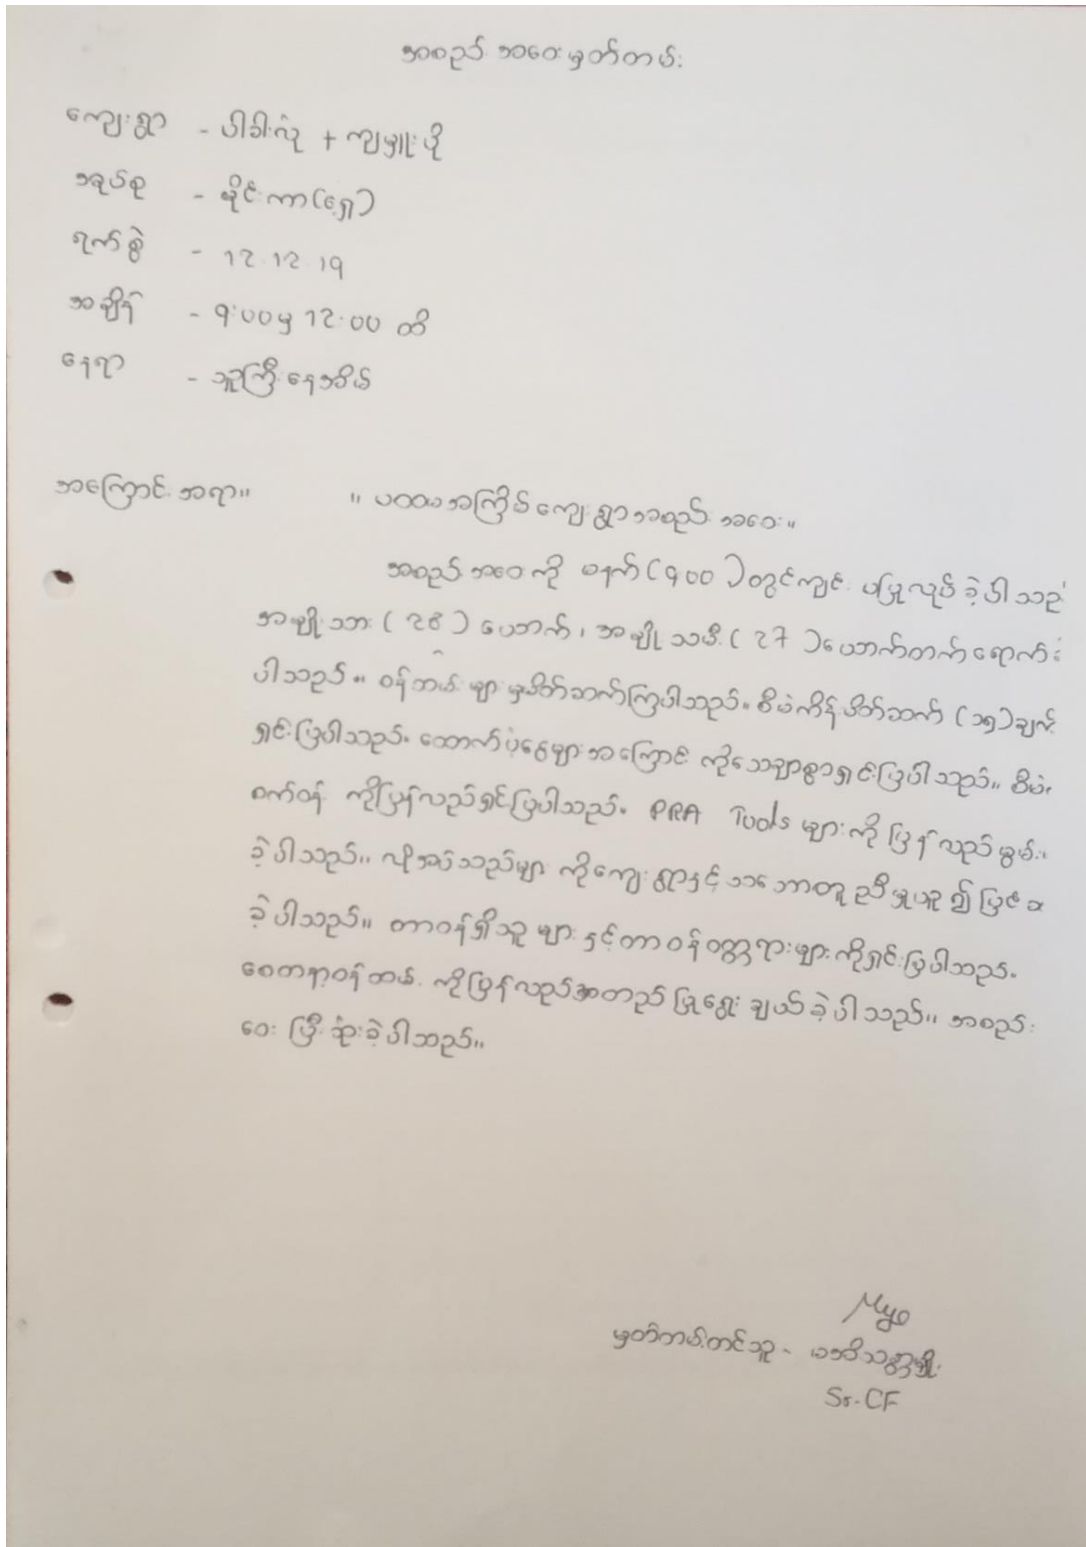 အစည်းအဝေးမှတ်တမ်း
ကျေးရွာ - ပါခါးလုံ + ကျမှူးပို
အုပ်စု - မိုင်းကာ(ရှေ့)
ရက်စွဲ - 12.12.19
အချိန် - 9:00မှ 12:00 ထိ
နေရာ - သူကြီးနေအိမ်
အကြောင်းအရာ။ ။ ပထမအကြိမ်ကျေးရွာအစည်းအဝေး။
အစည်းအဝေးကို မနက်(9:00)တွင်ကျင်းပပြုလုပ်ခဲ့ပါသည်
အမျိုးသား(28)ယောက်၊ အမျိုးသမီး(27)ယောက်တက်ရောက်
ပါသည်။ ဝန်ထမ်းများမှမိတ်ဆက်ကြပါသည်။ စီမံကိန်းမိတ်ဆက်(၁၅)ချက်
ရှင်းပြပါသည်။ ထောက်ပံ့ငွေများအကြောင်းကိုသေချာစွာရှင်းပြပါသည်။ စီမံ
စက်ဝန်းကိုပြန်လည်ရှင်းပြပါသည်။ PRA Tools များကိုပြန်လည်
ခဲ့ပါသည်။ လိုအပ်သည်များကိုကျေးရွာနှင့်သဘောတူညီမှုယူ၍ပြင်
ခဲ့ပါသည်။ တာဝန်ရှိသူများနှင့်တာဝန်ဝတ္တရားများကိုရှင်းပြပါသည်။
စေတနာ့ဝန်ထမ်းကိုပြန်လည်အတည်ပြုရွေးချယ်ခဲ့ပါသည်။ အစည်း
ဝေးပြီးဆုံးခဲ့ပါသည်။
Myo
မှတ်တမ်းတင်သူ -
Sr-CF